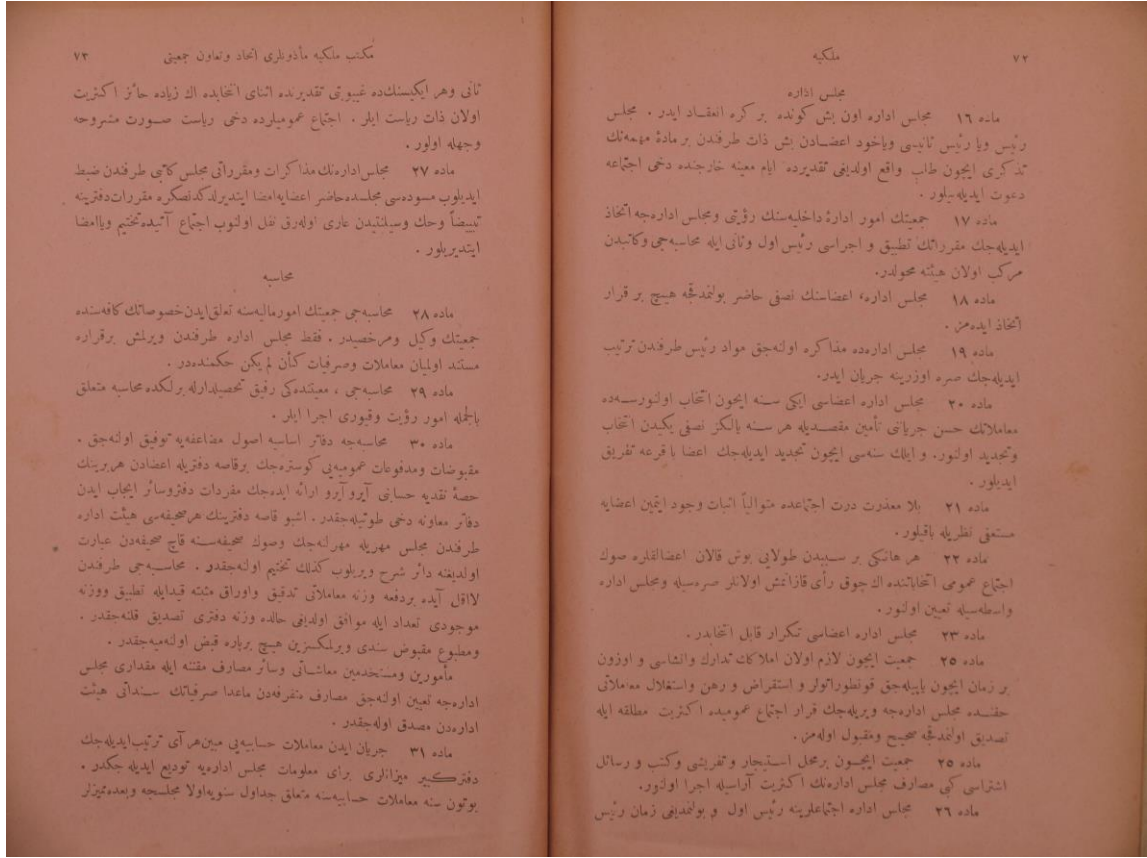 ٧٢
ملكيه
مجلس اداره
ماده ١٦ مجلس اداره اون بش كونده بر كره انعقاد ايدر . مجلس
رئيس ويا رئيس ثانيسى وياخود اعضادن بش ذات طرفندن بر مادۀ مهمه‌نك
تذكرى ايچون طلب واقع اولديغى تقديرده ايام معينه خارجنده دخى اجتماعه
دعوت ايديله‌بيلور .
ماده ١٧ جمعيتك امور ادارۀ داخليه‌سنك رؤيتى ومجلس اداره‌جه اتخاذ
ايديله‌جك مقرراتك تطبيق و اجراسى رئيس اول وثانى ايله محاسبه‌جى وكاتبدن
مركب اولان هيئته محولدر.
ماده ١٨ مجلس اداره، اعضاسنك نصفى حاضر بولنمدقجه هيچ بر قرار
اتخاذ ايده‌مز .
ماده ١٩ مجلس اداره‌ده مذاكره اولنه‌جق مواد رئيس طرفندن ترتيب
ايديله‌جك صره اوزرينه جريان ايدر.
ماده ٢٠ مجلس اداره اعضاسى ايكى سنه ايچون انتخاب اولنورسه‌ده
معاملاتك حسن جريانى تأمين مقصديله هر سنه يالكز نصفى يكيدن انتخاب
وتجديد اولنور. و ايلك سنه‌سى ايچون تجديد ايديله‌جك اعضا با قرعه تفريق
ايديلور .
ماده ٢١ بلا معذرت درت اجتماعده متواليا اثبات وجود ايتمين اعضايه
مستعفى نظريله باقيلور .
ماده ٢٢ هر هانكى بر سببدن طولايى بوش قالان اعضالقلره صوك
اجتماع عمومى انتخاباتنده اك چوق رأى قازانمش اولانلر صره‌سيله ومجلس اداره
واسطه‌سيله تعيين اولنور .
ماده ٢٣ مجلس اداره اعضاسى تكرار قابل انتخابدر .
ماده ٢٥ جمعيت ايچون لازم اولان املاكك تدارك وانشاسى و اوزون
بر زمان ايچون ياپيله‌جق قونطوراتولر و استقراض و رهن واستغلال معاملاتى
حقنده مجلس اداره‌جه ويريله‌جك قرار اجتماع عموميده اكثريت مطلقه ايله
تصديق اولنمدقجه صحيح ومقبول اوله‌مز .
ماده ٢٥ جمعيت ايچون بر محل استيجار و تفريشى وكتب و رسائل
اشتراسى كبى مصارف مجلس اداره‌نك اكثريت آراسيله اجرا اولنور.
ماده ٢٦ مجلس اداره اجتماعلرينه رئيس اول و بولنمديغى زمان رئيس
مكتب ملكيه مأذونلرى اتحاد وتعاون جمعيتى
٧٣
ثانى وهر ايكيسنك‌ده غيبوبتى تقديرنده اثناى انتخابده اك زياده حائز اكثريت
اولان ذات رياست ايلر . اجتماع عموميلرده دخى رياست صورت مشروحه
وجهله اولور .
ماده ٢٧ مجلس اداره‌نك مذاكرات ومقرراتى مجلس كاتبى طرفندن ضبط
ايديلوب مسوده‌سى مجلسده حاضر اعضايه امضا ايتديرلدكدنصكره مقررات دفترينه
تبييضاً وحك وسيلنتيدن عارى اوله‌رق نقل اولنوب اجتماع آتيده تختيم ويا امضا
ايتديريلور .
محاسبه
ماده ٢٨ محاسبه‌جى جمعيتك امور ماليه‌سنه تعلق ايدن خصوصاتك كافه‌سنده
جمعيتك وكيل ومرخصيدر . فقط مجلس اداره طرفندن ويرلمش برقراره
مستند اولميان معاملات وصرفيات كأن لم يكن حكمنده‌در .
ماده ٢٩ محاسبه‌جى ، معيتنده‌كى رفيق تحصيلدارله برلكده محاسبه متعلق
بالجمله امور رؤيت وقيودى اجرا ايلر .
ماده ٣٠ محاسبه‌جه دفاتر اساسيه اصول مضاعفه‌يه توفيق اولنه‌جق .
مقبوضات ومدفوعات عموميه‌يى كوستره‌جك برقاصه دفتريله اعضادن هربرينك
حصۀ نقديه حسابنى آيرو آيرو ارائه ايده‌جك مفردات دفتر وسائر ايجاب ايدن
دفاتر معاونه دخى طوتيله‌جقدر . اشبو قاصه دفترينك هر صحيفه‌سى هيئت اداره
طرفندن مجلس مهريله مهرلنه‌جك وصوك صحيفه‌سنه قاچ صحيفه‌دن عبارت
اولديغنه دائر شرح ويريلوب كذلك تختيم اولنه‌جقدر . محاسبه‌جى طرفندن
لااقل آيده بردفعه وزنه معاملاتى تدقيق واوراق مثبته قيدايله تطبيق ووزنه
موجودى تعداد ايله موافق اولديغى حالده وزنه دفترى تصديق قلنه‌جقدر .
ومطبوع مقبوض سندى ويرلمكسزين هيچ برپاره قبض اولنه‌ميه‌جقدر .
مأمورين ومستخدمين معاشاتى وسائر مصارف مقننه ايله مقدارى مجلس
اداره‌جه تعيين اولنه‌جق مصارف متفرقه‌دن ماعدا صرفياتك سنداتى هيئت
اداره‌دن مصدق اوله‌جقدر .
ماده ٣١ جريان ايدن معاملات حسابيه‌يى مبين هر آى ترتيب ايديله‌جك
دفتر كبير ميزانلرى براى معلومات مجلس اداره‌يه توديع ايديله جكدر .
بوتون سنه معاملات حسابيه‌سنه متعلق جداول سنويه اولا مجلسجه وبعده مميزلر